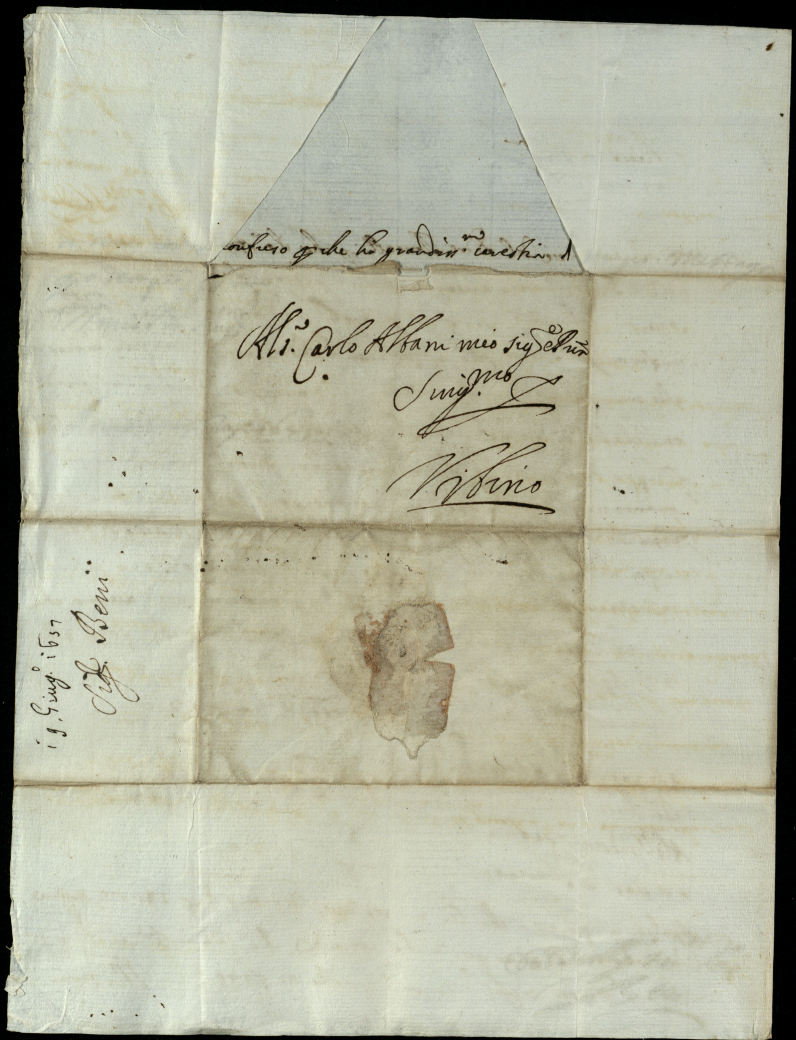 confieso che ha grandiss.mo carestia d
Al S.r Carlo Albani mio sig.re e P̃ne
Sing.mo
Vrbino
19. Giug.o 1637
Sig. Beni